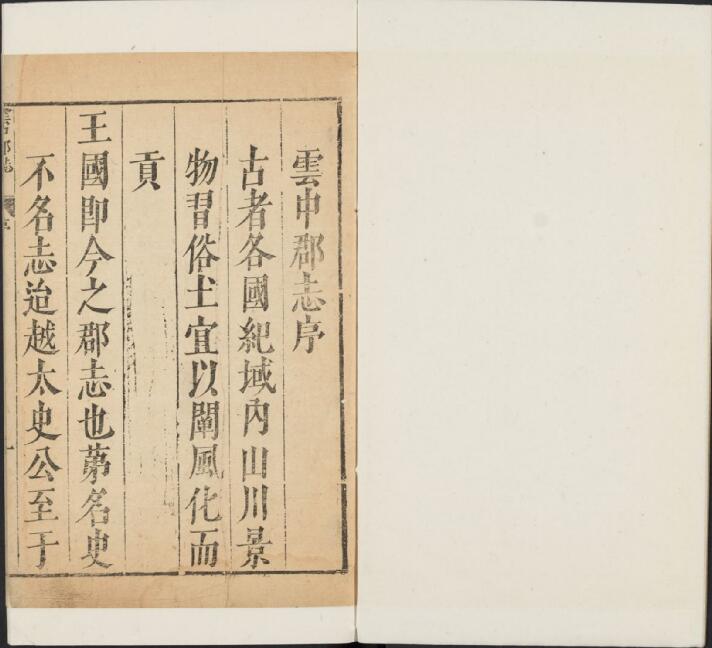 雲中郡志序
古者各國紀域內山川景
物習俗土宜以闡風化而
貢
王國即今之郡志也苐名史
不名志迨越太史公至于